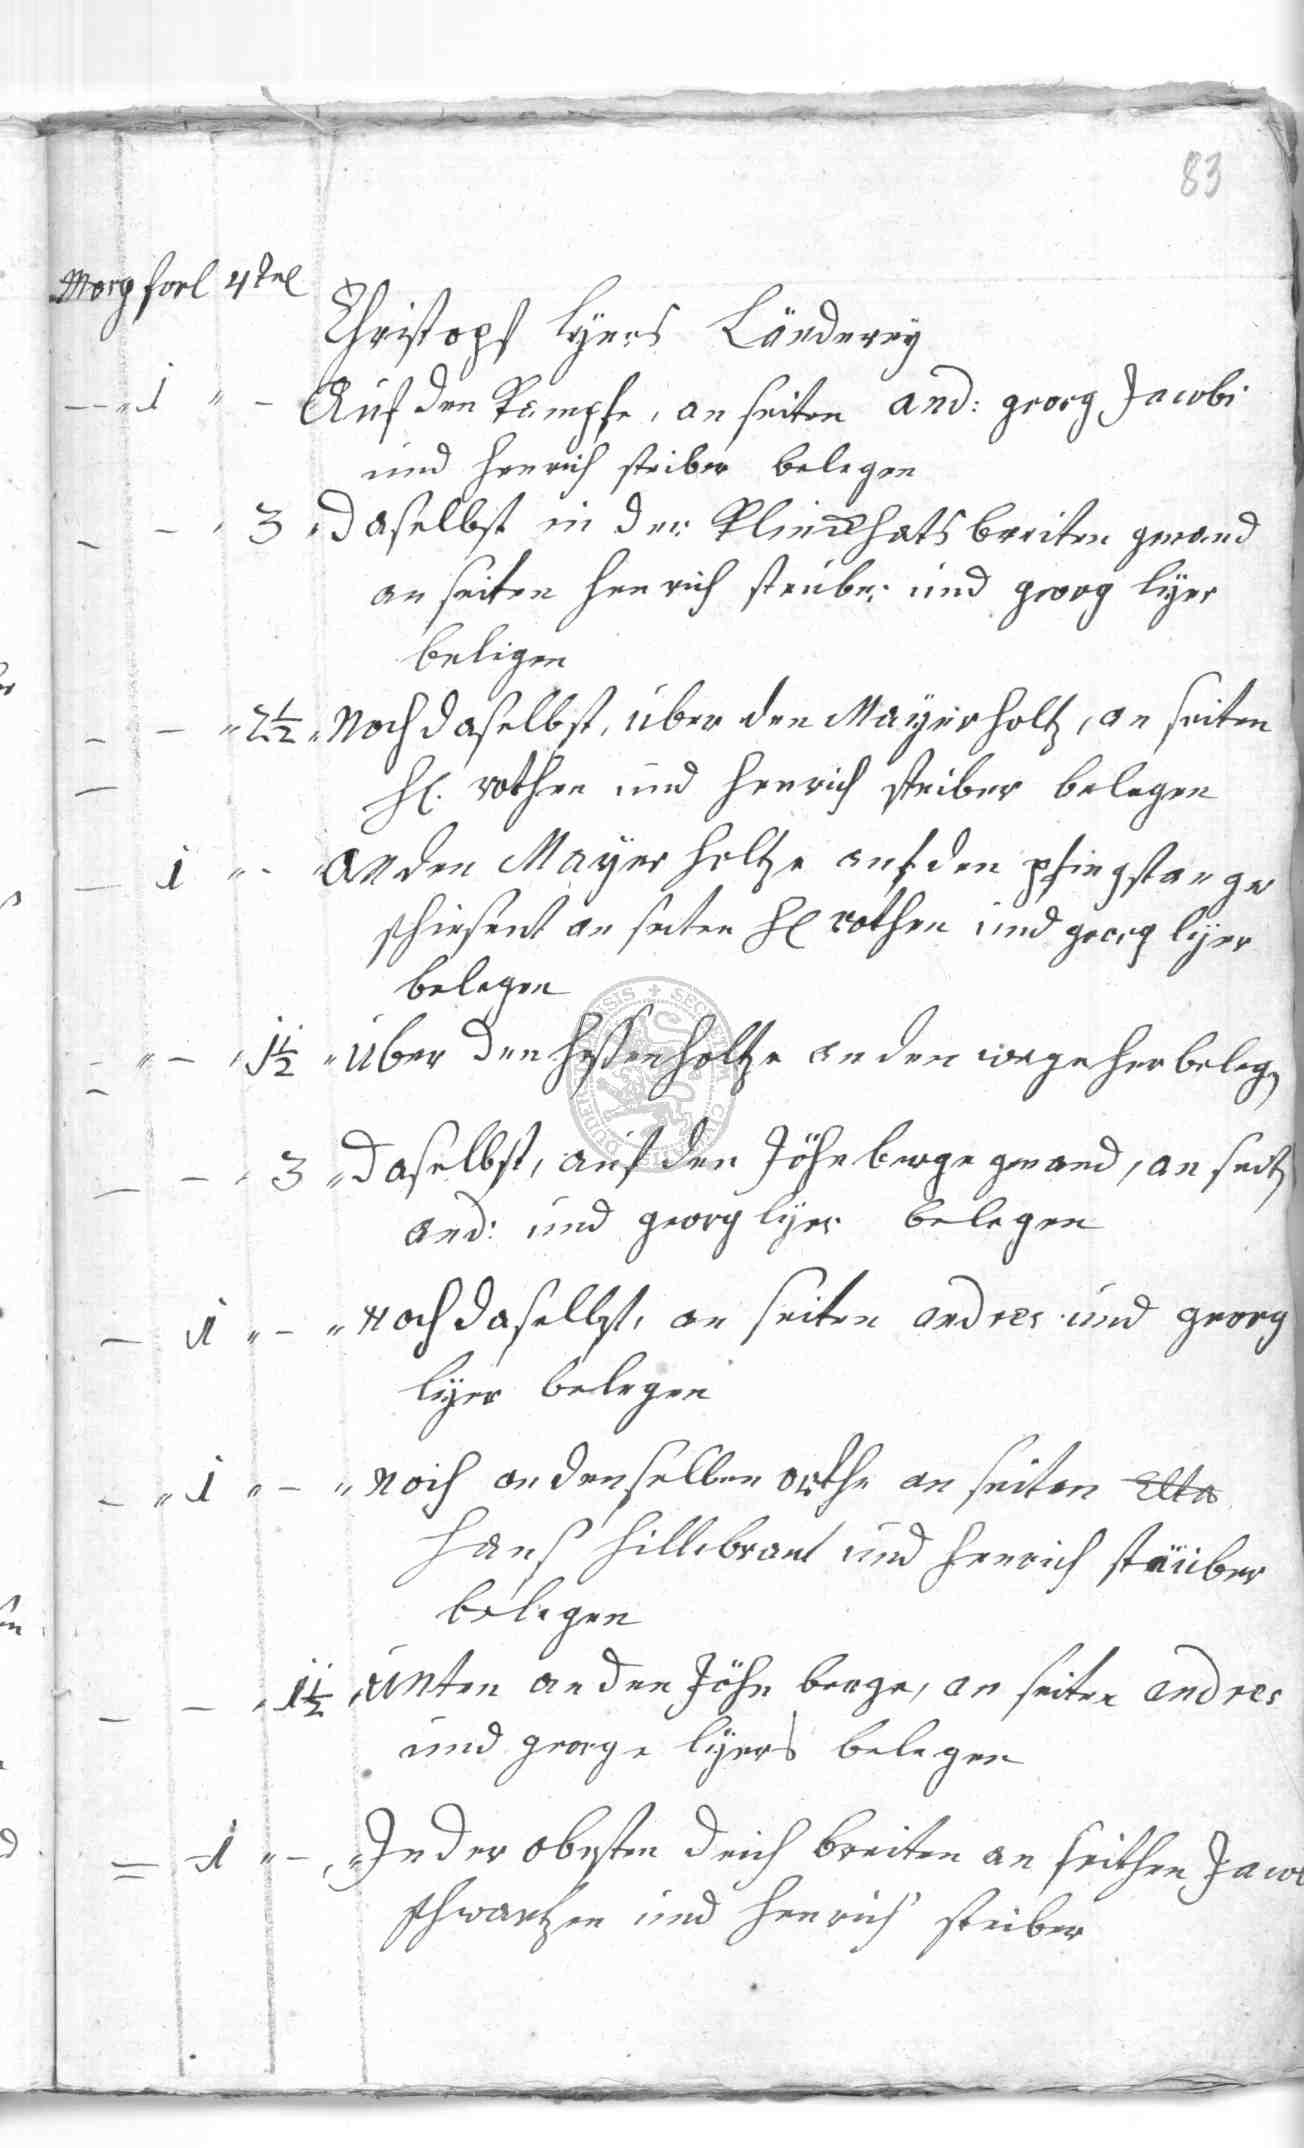 83
Morg forl 4tel
Christoph lyers Länderey
- - " 1 " - Auf den Kampfe, an seiten and: georg Jacobi
und Henrich steiber belegen
- - " 3 " Daselbst in der Klinckhats breiten gewand
an seiten Henrich steuber und georg lÿer
beligen
- - " 2½ " Noch daselbst, über den Mayerholtz, an seiten
H. rothen und Henrich steiber belegen
- 1 " - " An den Mayer holtze auf den pfingstanger
schiesent an seiten H rothen und georg lÿer
belegen
- " - " 1½ " Über den Hessenholtze an den wege her beleg
- - " 3 " Daselbst, auf den Jöhn berge gewand, an seit
and: und georg lÿer belegen
- 1 " - " Noch daselbst, an seiten andres und georg
lÿer belegen
- " 1 " - " Noch an denselben orthe an seiten
Hans Hillebrant und Henrich stäüber
belegen
- - " 1½ " Unten an den Jöhn berge, an seiten andres
und george lÿers belegen
- 1 " - " In der obersten deich breiten an seithen Jacob
schwartzen und Henrich steiber